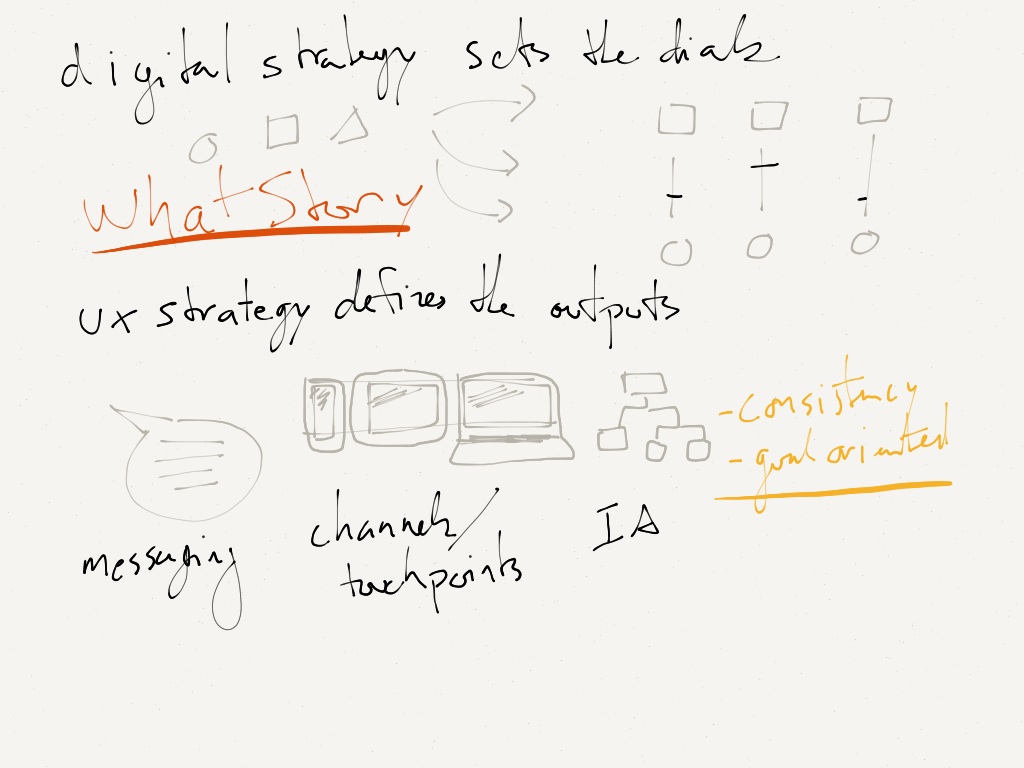 digital strategy sets the dials
What Story
ux strategy defines the outputs
- consistency
- goal oriented
messaging
channels/
touchpoints
IA